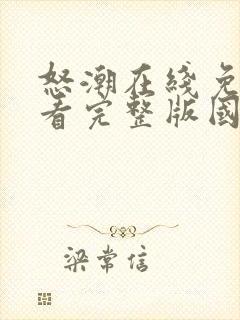 怒潮在线免
看完整版國
梁常信